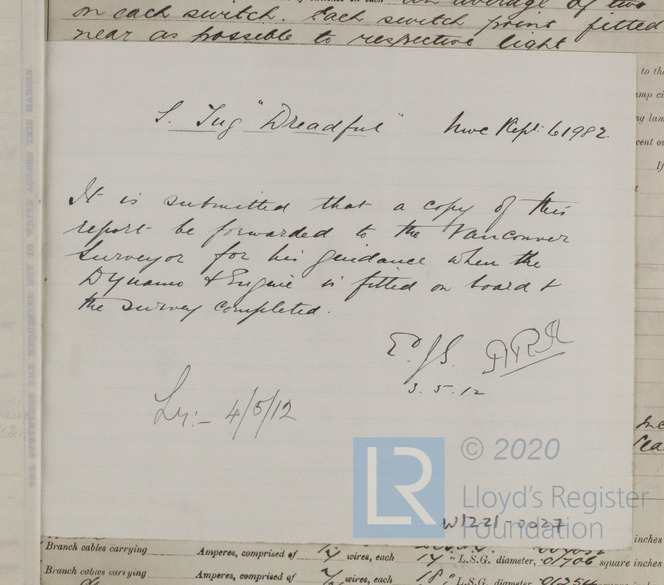 an average of two
on each switch. Each switch point fitted
near as possible to respective light
to the
mp ci
ng lam
cent ou
If
S. Tug "Dreadful" Nwc Rept. 61982.
It is submitted that a copy of this
report be forwarded to the Vancouver
Surveyor for his guidance when the
Dynamo & Engine is fitted on board &
the survey completed.
3.5.12
4/5/12
LR © 2020
Lloyd's Register
Foundation
W1221-0027
inches
Branch cables carrying Amperes, comprised of wires, each L.S.G. diameter, square inches
Branch cables carrying Amperes, comprised of wires, each 18 L.S.G. diameter, square inches